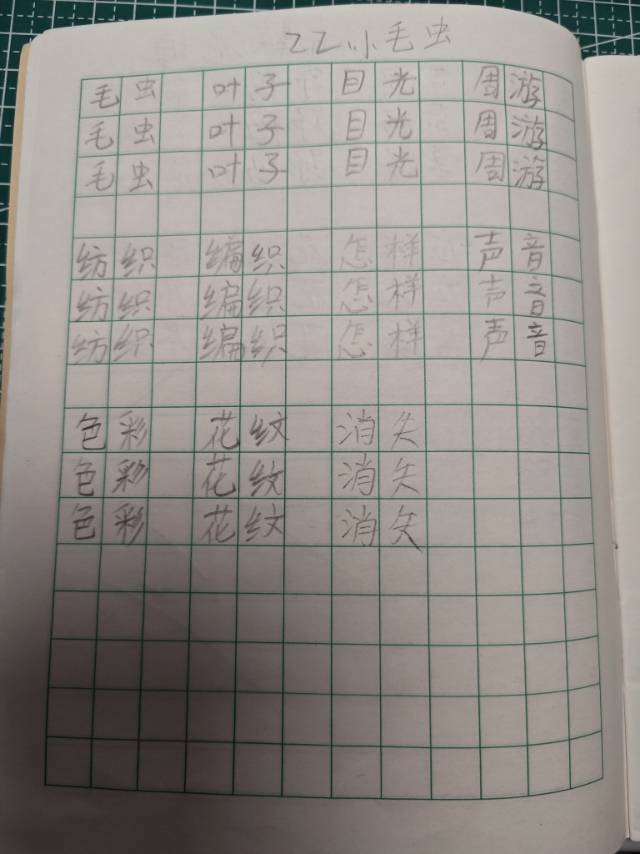 22.小毛虫
毛虫 叶子 目光 周游
毛虫 叶子 目光 周游
毛虫 叶子 目光 周游
纺织 编织 怎样 声音
纺织 编织 怎样 声音
纺织 编织 怎样 声音
色彩 花纹 消失
色彩 花纹 消失
色彩 花纹 消失